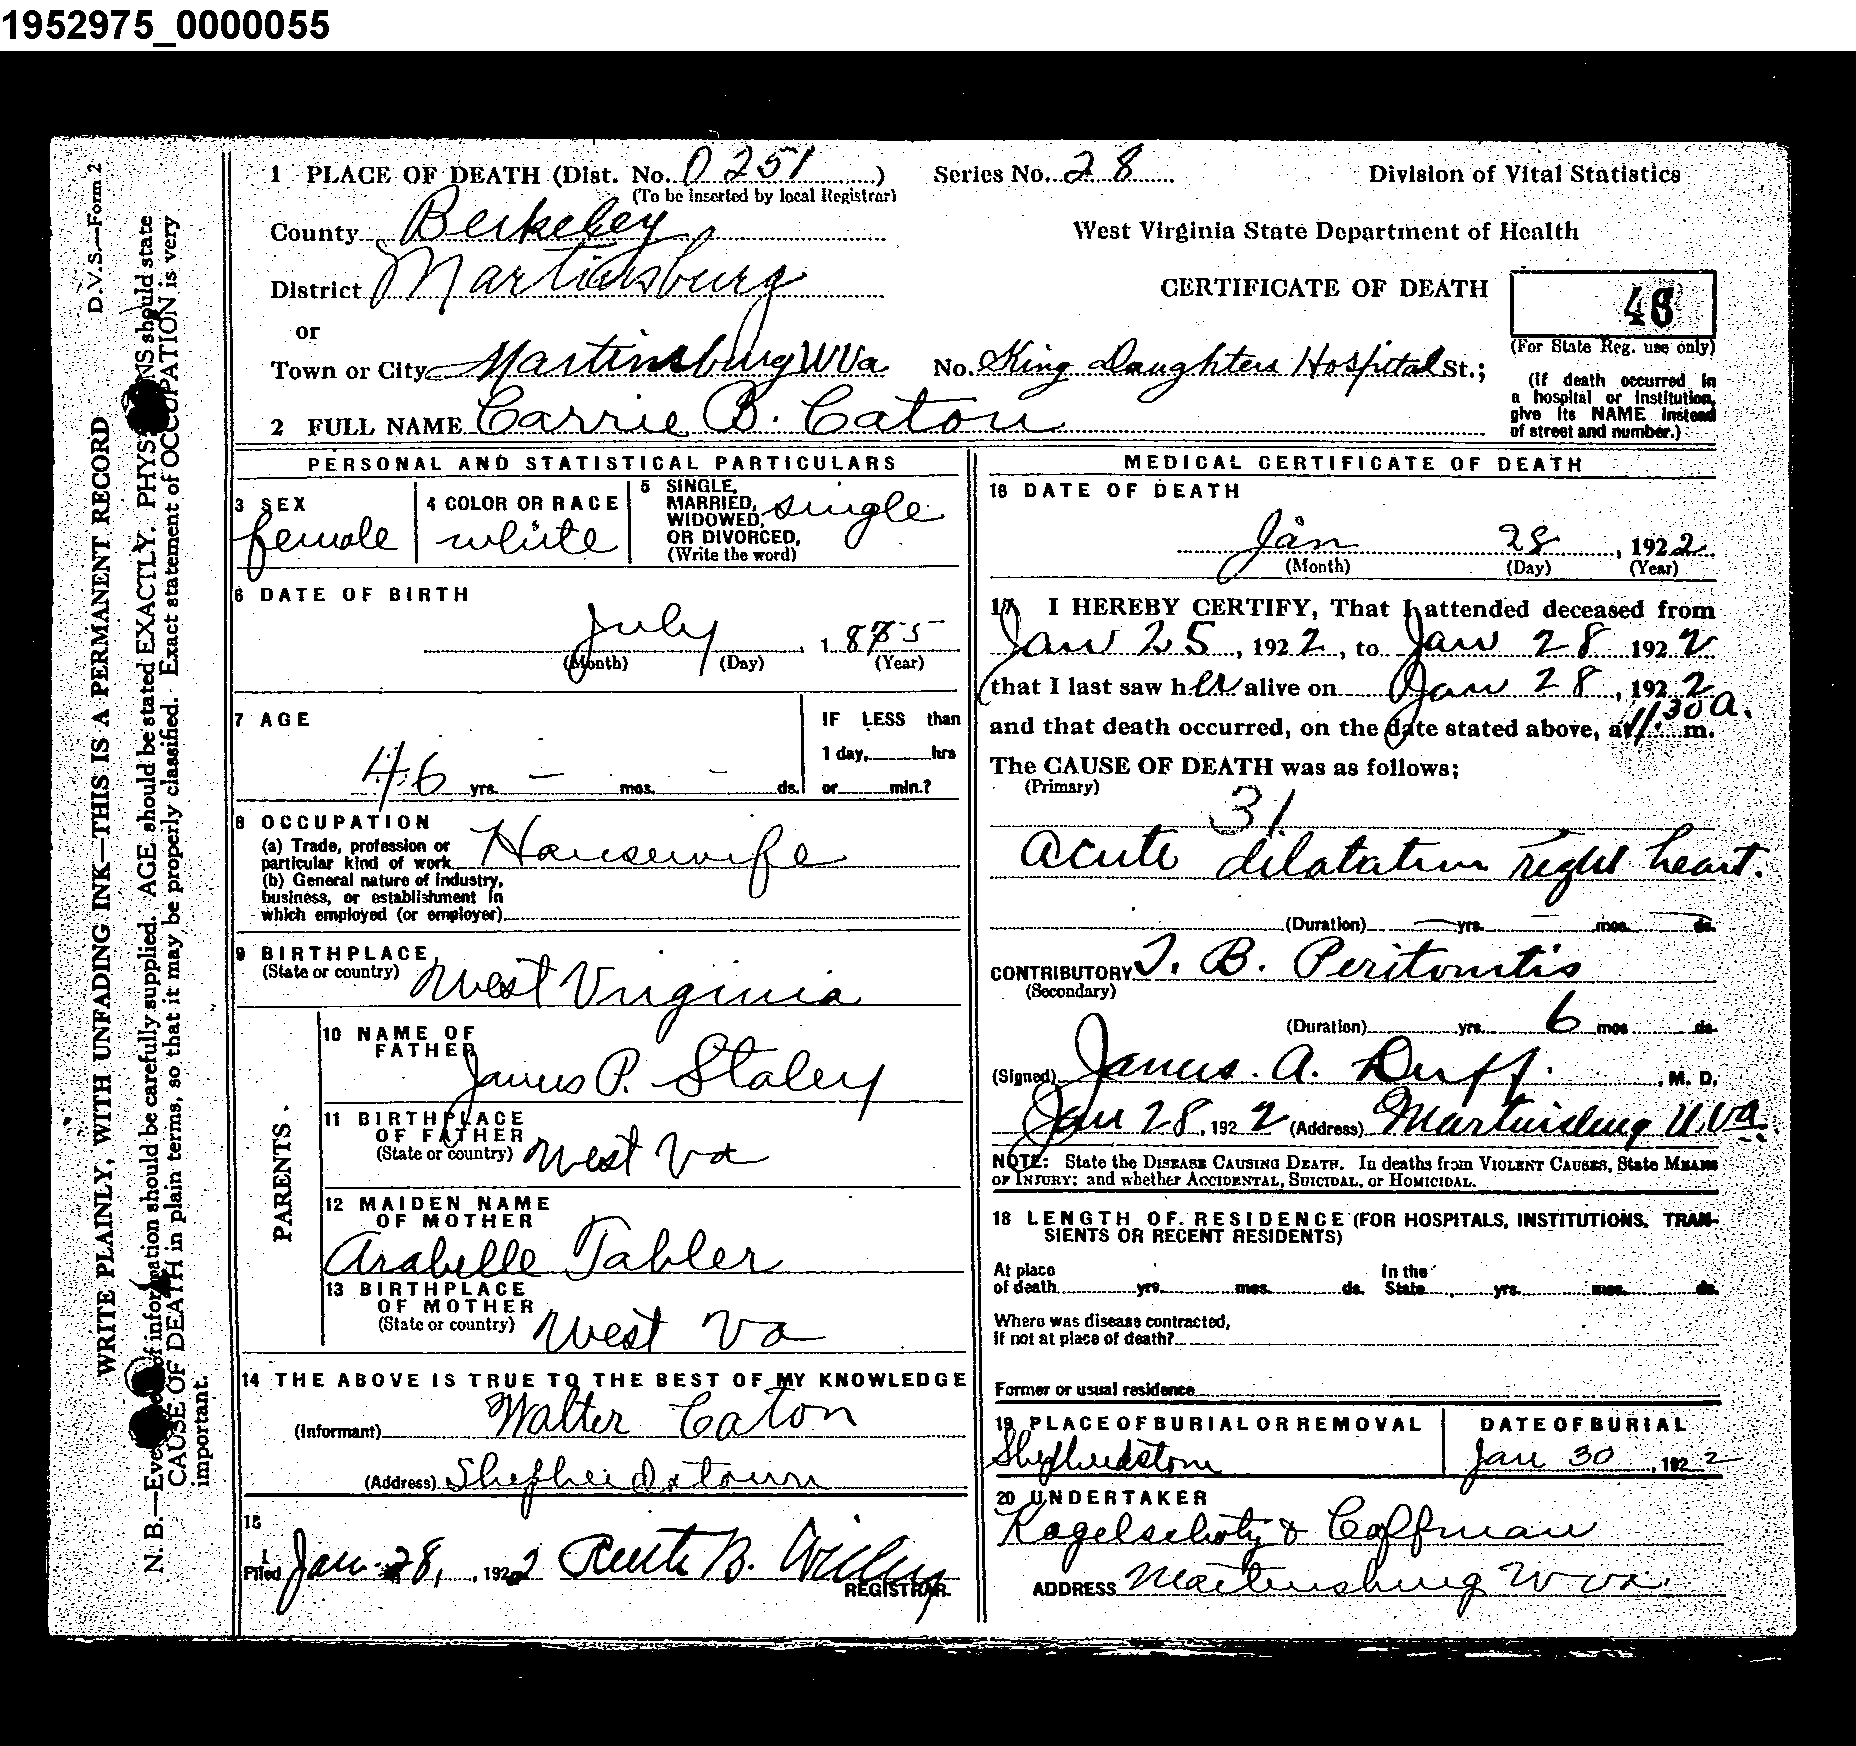 1952975_0000055
1 PLACE OF DEATH (Dist. No. 0251) Series No. 28 Division of Vital Statistics
(To be inserted by local Registrar)
County Berkeley West Virginia State Department of Health
District Martinsburg CERTIFICATE OF DEATH 48
or
(For State Reg. use only)
Town or City Martinsburg W Va No. King Daughters Hospital St.;
(If death occurred in a hospital or institution, give its NAME instead of street and number.)
2 FULL NAME Carrie B. Caton
PERSONAL AND STATISTICAL PARTICULARS
3 SEX female
4 COLOR OR RACE white
5 SINGLE, MARRIED, WIDOWED, OR DIVORCED, (Write the word) single
6 DATE OF BIRTH
July 1875
(Month) (Day) (Year)
7 AGE
46 yrs. – mos. – ds.
IF LESS than
1 day, hrs
or min.?
8 OCCUPATION
(a) Trade, profession or
particular kind of work Housewife
(b) General nature of industry,
business, or establishment in
which employed (or employer)
9 BIRTHPLACE
(State or country) West Virginia
PARENTS.
10 NAME OF
FATHER James P. Staley
11 BIRTHPLACE
OF FATHER
(State or country) West Va
12 MAIDEN NAME
OF MOTHER
Arabelle Tabler
13 BIRTHPLACE
OF MOTHER
(State or country) West Va
14 THE ABOVE IS TRUE TO THE BEST OF MY KNOWLEDGE
(Informant) Walter Caton
(Address) Shepherdstown
15
Filed Jan. 28, 1922 Ruth B.
REGISTRAR
MEDICAL CERTIFICATE OF DEATH
16 DATE OF DEATH
Jan 28, 1922
(Month) (Day) (Year)
17 I HEREBY CERTIFY, That I attended deceased from
Jan 25, 1922, to Jan 28 1922
that I last saw her alive on Jan 28, 1922
and that death occurred, on the date stated above, at 11.30 a. m.
The CAUSE OF DEATH was as follows;
(Primary)
31
acute dilatation right heart.
(Duration) – yrs. – mos. – ds.
CONTRIBUTORY T. B. Peritonitis
(Secondary)
(Duration) yrs. 6 mos ds.
(Signed) James. A. Duff. , M. D.
Jan 28, 1922 (Address) Martinsburg W.Va.
NOTE: State the DISEASE CAUSING DEATH. In deaths from VIOLENT CAUSES, State MEANS
OF INJURY; and whether ACCIDENTAL, SUICIDAL, or HOMICIDAL.
18 LENGTH OF RESIDENCE (FOR HOSPITALS, INSTITUTIONS, TRAN-
SIENTS OR RECENT RESIDENTS)
At place
of death yrs. mos. ds.
In the
State yrs. mos. ds.
Where was disease contracted,
if not at place of death?
Former or usual residence
19 PLACE OF BURIAL OR REMOVAL
Shepherdstown
DATE OF BURIAL
Jan 30, 1922
20 UNDERTAKER
Kogelschatz & Coffman
ADDRESS Martinsburg W Va.
D.V.S.—Form 2
WRITE PLAINLY, WITH UNFADING INK—THIS IS A PERMANENT RECORD
N. B.—Every of information should be carefully supplied. AGE should be stated EXACTLY. PHYS NS should state
CAUSE OF DEATH in plain terms, so that it may be properly classified. Exact statement of OCCUPATION is very
important.